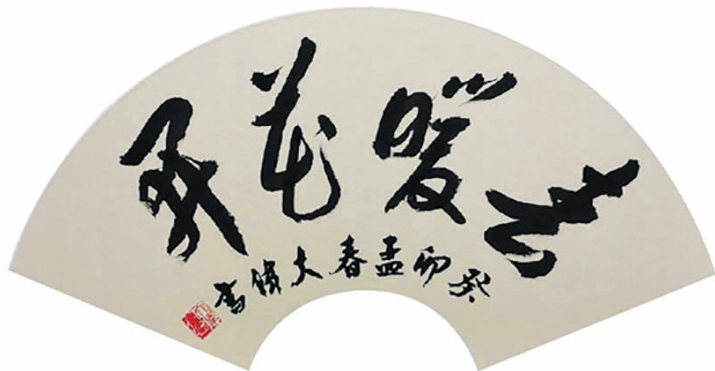 春暖花開
癸卯孟春大偉書